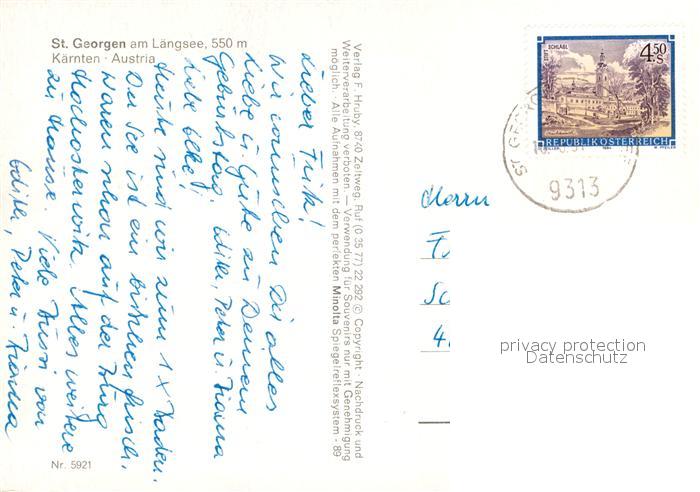 St. Georgen am Längsee, 550 m
Kärnten · Austria
Lieber Fritz!
Wir wünschen Dir alles
Liebe u. Gute zu Deinem
Geburtstag. Edith, Peter u.
Liebe Elke!
Heute sind wir zum 1 x Baden.
Der See ist ein bißchen frisch.
Waren schon auf der Burg
Hochosterwitz. Alles weitere
zu Hause. Viele Bussi von
Edith, Peter u.
Nr. 5921
Verlag F. Hruby, 8740 Zeltweg, Ruf (0 35 77) 22 292 © Copyright · Nachdruck und
Weiterverarbeitung verboten. — Verwendung für Souvenirs nur mit Genehmigung
möglich. Alle Aufnahmen mit dem perfekten Minolta Spiegelreflexsystem - 89
STIFT SCHLÄGL
4.50
S
REPUBLIK ÖSTERREICH
ST GEORG
9313
Herrn
privacy protection
Datenschutz